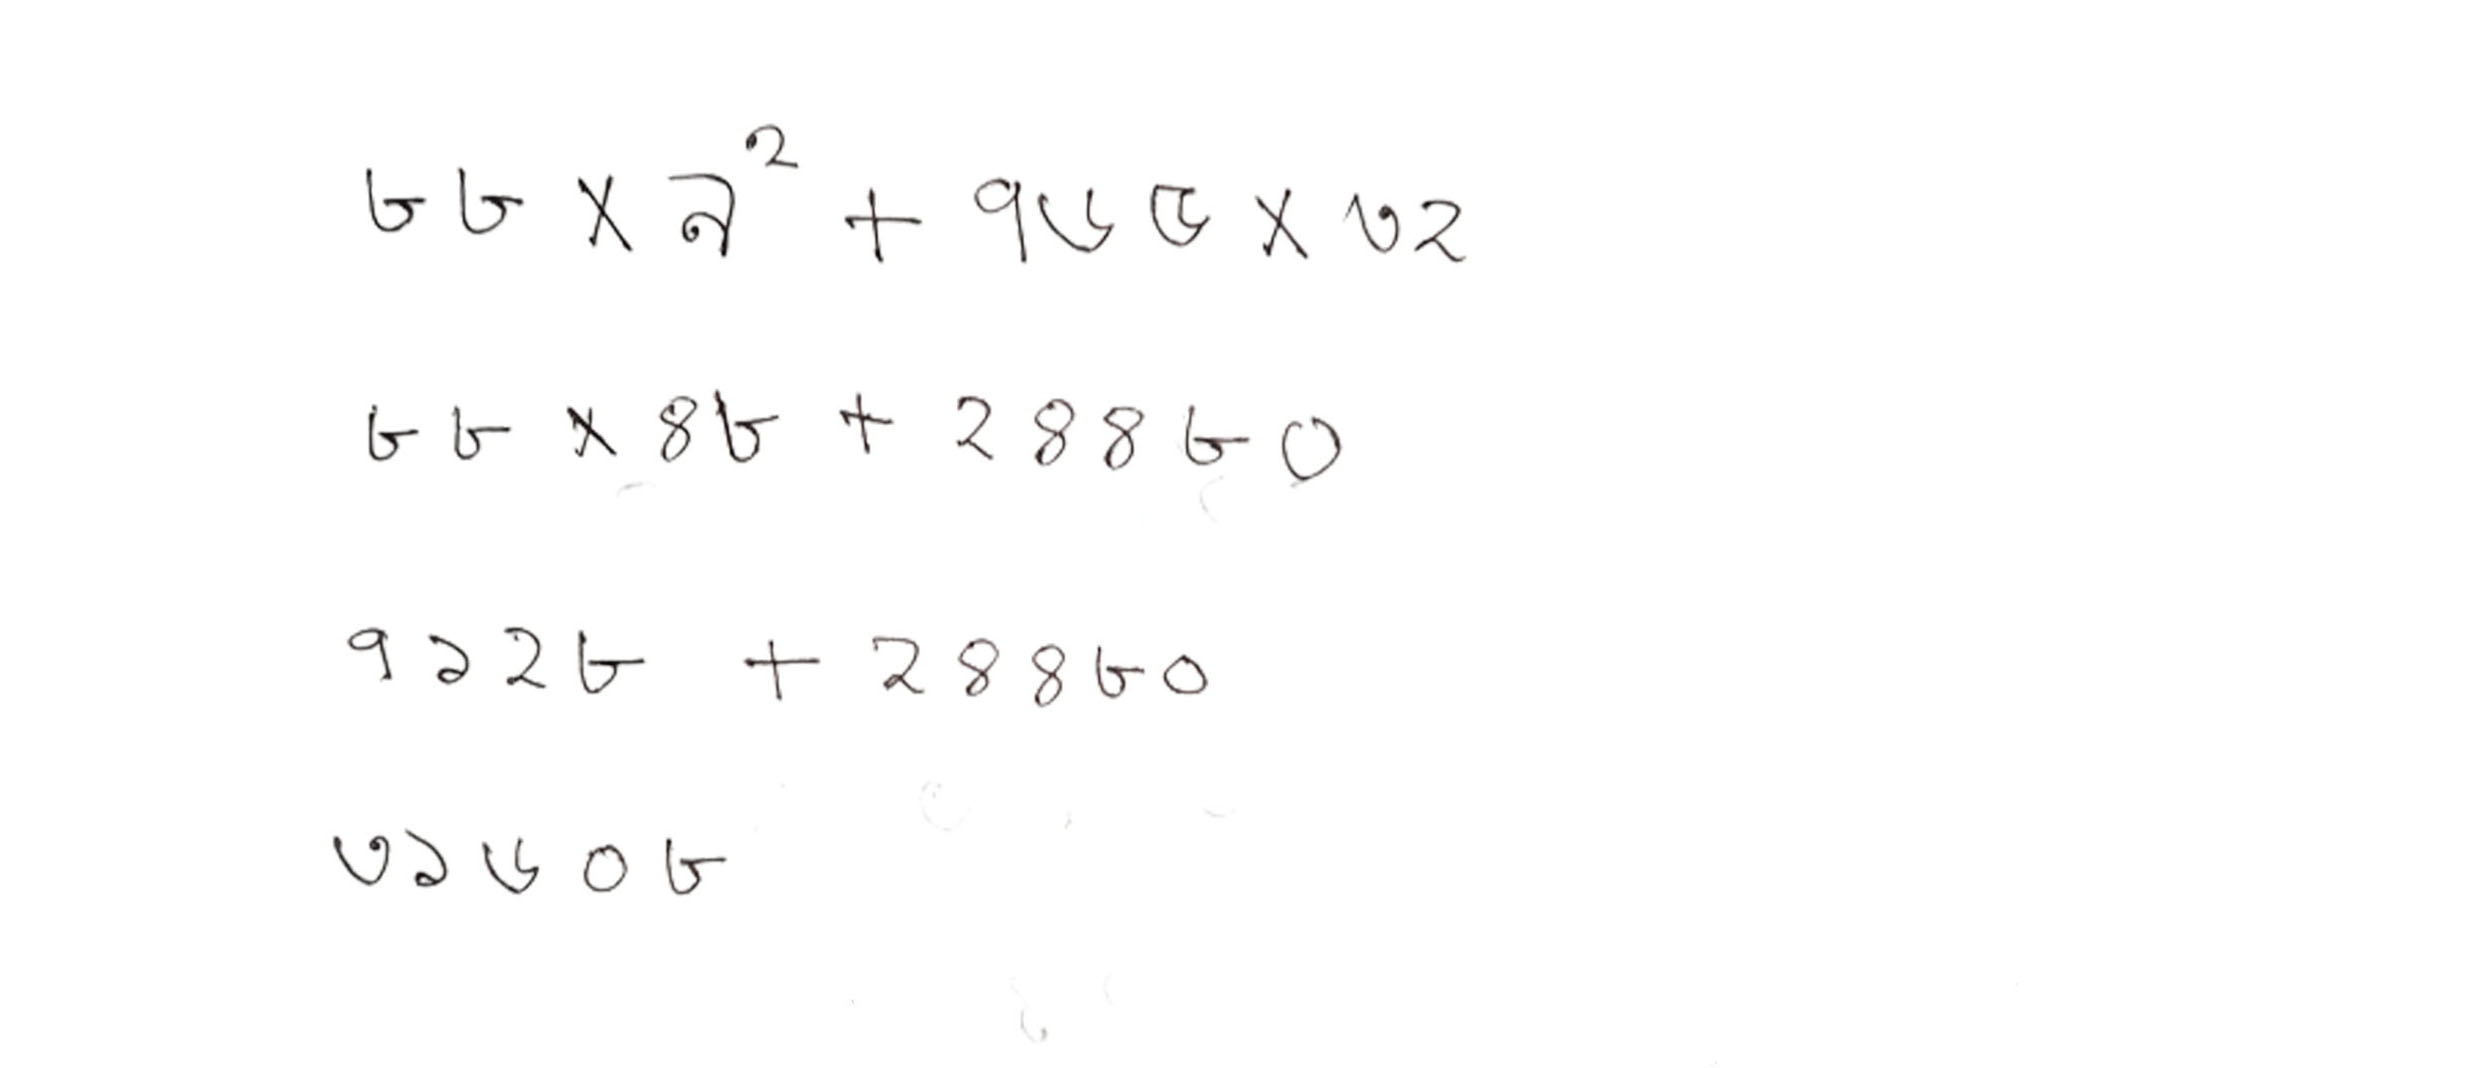 ৮৮ × ৯² + ৭৬৫ × ৩২
৮৮ × ৪৮ + ২৪৪৮০
৭১২৮ + ২৪৪৮০
৩১৬০৮